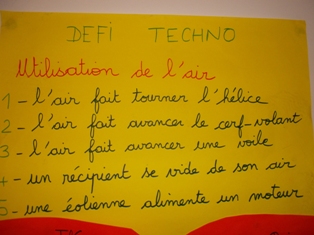 DEFI TECHNO
Utilisation de l'air
1 - l'air fait tourner l'hélice
2 - l'air fait avancer le cerf-volant
3 - l'air fait avancer une voile
4 - un récipient se vide de son air
5 - une éolienne alimente un moteur